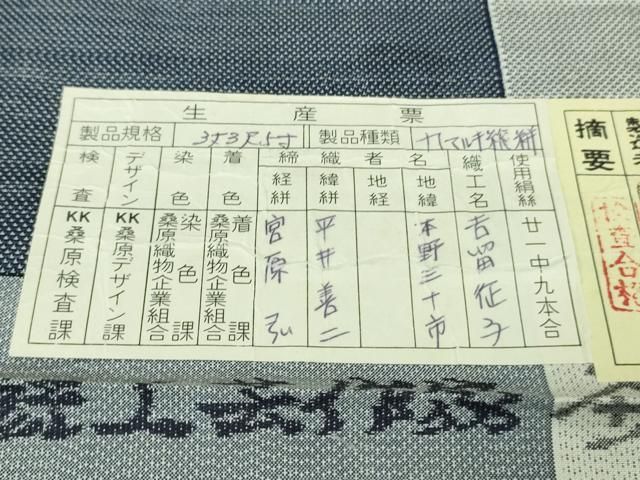 生産票
製品規格 3丈3尺5寸 製品種類 九マルキ総絣
検査 デザイン 染色 着色 締織者名 織工名 使用絹絲
経絣 緯絣 地経 地緯
KK桑原検査課
KK桑原デザイン課
桑原織物企業組合 染色課
桑原織物企業組合 着色課
宮原弘
平井善二
本野三十市
吉留征子
廿一中九本合
摘要
検査合格